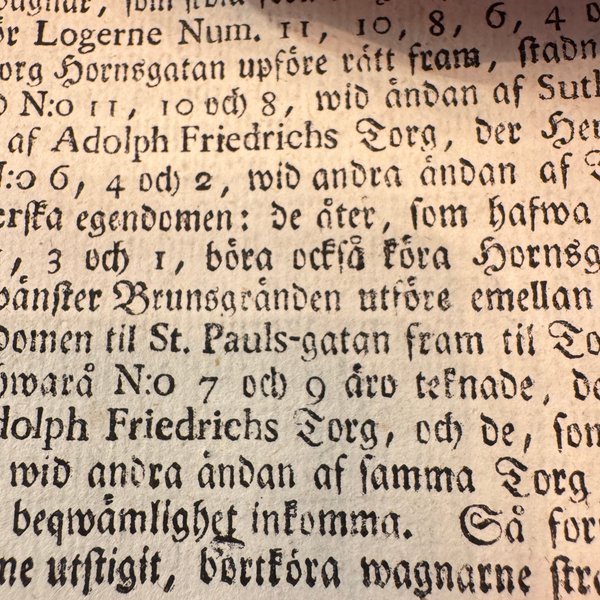 för Logerne Num. 11, 10, 8, 6, 4 o
Torg Hornsgatan upföre rätt fram, stadn
N:o 11, 10 och 8, wid ändan af Suth
af Adolph Friedrichs Torg, der Her
N:o 6, 4 och 2, wid andra ändan af T
erska egendomen: de åter, som hafwa
, 3 och 1, böra också köra Hornsg
wänster Brunsgränden utföre emellan
domen til St. Pauls-gatan fram til To
hwarå N:o 7 och 9 äro teknade, de
dolph Friedrichs Torg, och de, som
wid andra ändan af samma Torg
beqwämlighet inkomma. Så for
ne utstigit, bortköra wagnarne stra